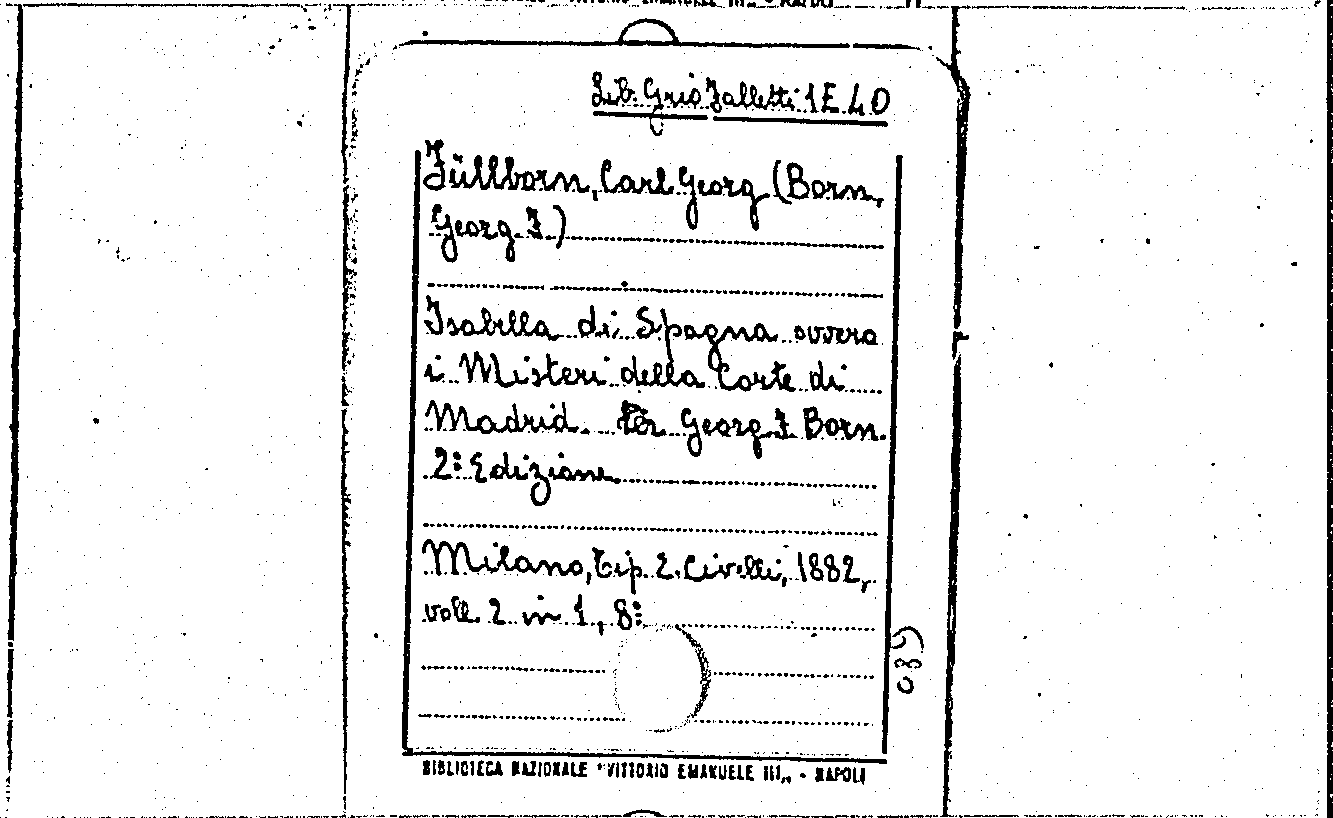 Lib. Grio Falletti 1 E 40
Füllborn, Carl Georg (Born,
Georg F.)
Isabella di Spagna ovvero
i Misteri della Corte di
Madrid. Per Georg F. Born.
2ª Edizione
Milano, Tip. E. Civelli, 1882,
voll. 2 in 1, 8º
039
BIBLIOTECA NAZIONALE "VITTORIO EMANUELE III„ - NAPOLI